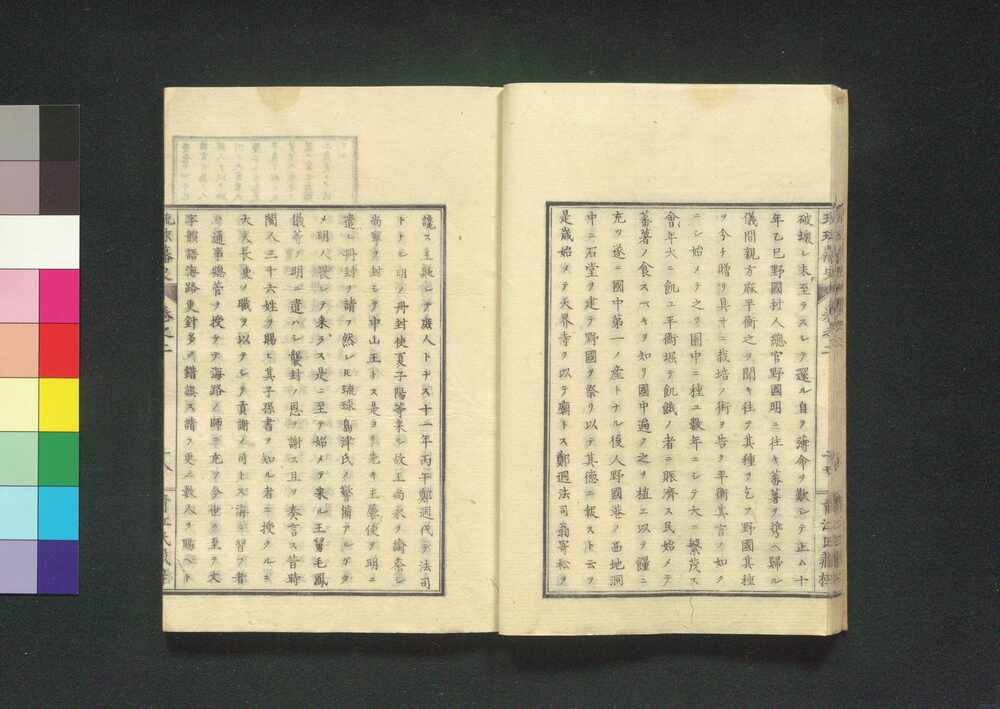 破壊レ未至ラスシテ還ル自ヲ薄命ヲ歎シテ正ム十
年乙巳野國村人總官野國明ニ往キ蕃薯ヲ携ヘ歸ル
儀間親方麻平衡之ヲ聞キ往テ其種ヲ乞フ野國其種
ヲ今チ贈リ具サニ栽培ノ術ヲ告ク平衡其言ノ如ク
ニシ始メテ之ヲ圃中ニ種ユ數年ニシテ大ニ繁茂ス
會年大ニ飢ユ平衡堀テ飢餓ノ者ニ賑濟ス民始メテ
蕃薯ノ食スヘキヲ知リ國中遍ク之ヲ植エ以テ糧ニ
充ツ遂ニ國中第一ノ産トナル後人野國港ノ西地洞
中ニ石堂ヲ建テ野國ヲ祭リ以テ其德ニ報スト云フ
是歳始メテ天界寺ヲ以テ廟トス鄭迵法司翁寄松ヲ
讒ス王貶シテ庶人トナス十一年丙午鄭迵代テ法司
トナル明ノ册封使夏子陽等来ル故王尚永ヲ諭祭シ
尚寧ヲ封シテ中山王トス是ヨリ先キ王屢使ヲ明ニ
遣シ册封ヲ請フ然レ𪜈琉球島津氏ノ警備アルヲ以テ
メ明人畏レテ来ラス是ニ至テ始メテ来ル王舅毛鳳
儀等ヲ明ニ遣ハシ襲封ノ恩ヲ謝ス且ツ奏言ス昔時
閩人三十六姓ヲ賜ヒ其子孫書ヲ知ル者ニ授クルニ
大夫長史ノ職ヲ以テシテ貢謝ノ司トス海ニ習フ者
ニ通事總管ヲ授ケテ海路ノ師ニ充ツ今世久至テ文
字韻語海路更針多ク錯誤ス請フ更ニ數人ヲ賜ヘト
琉球藩史
卷之二
青江氏藏